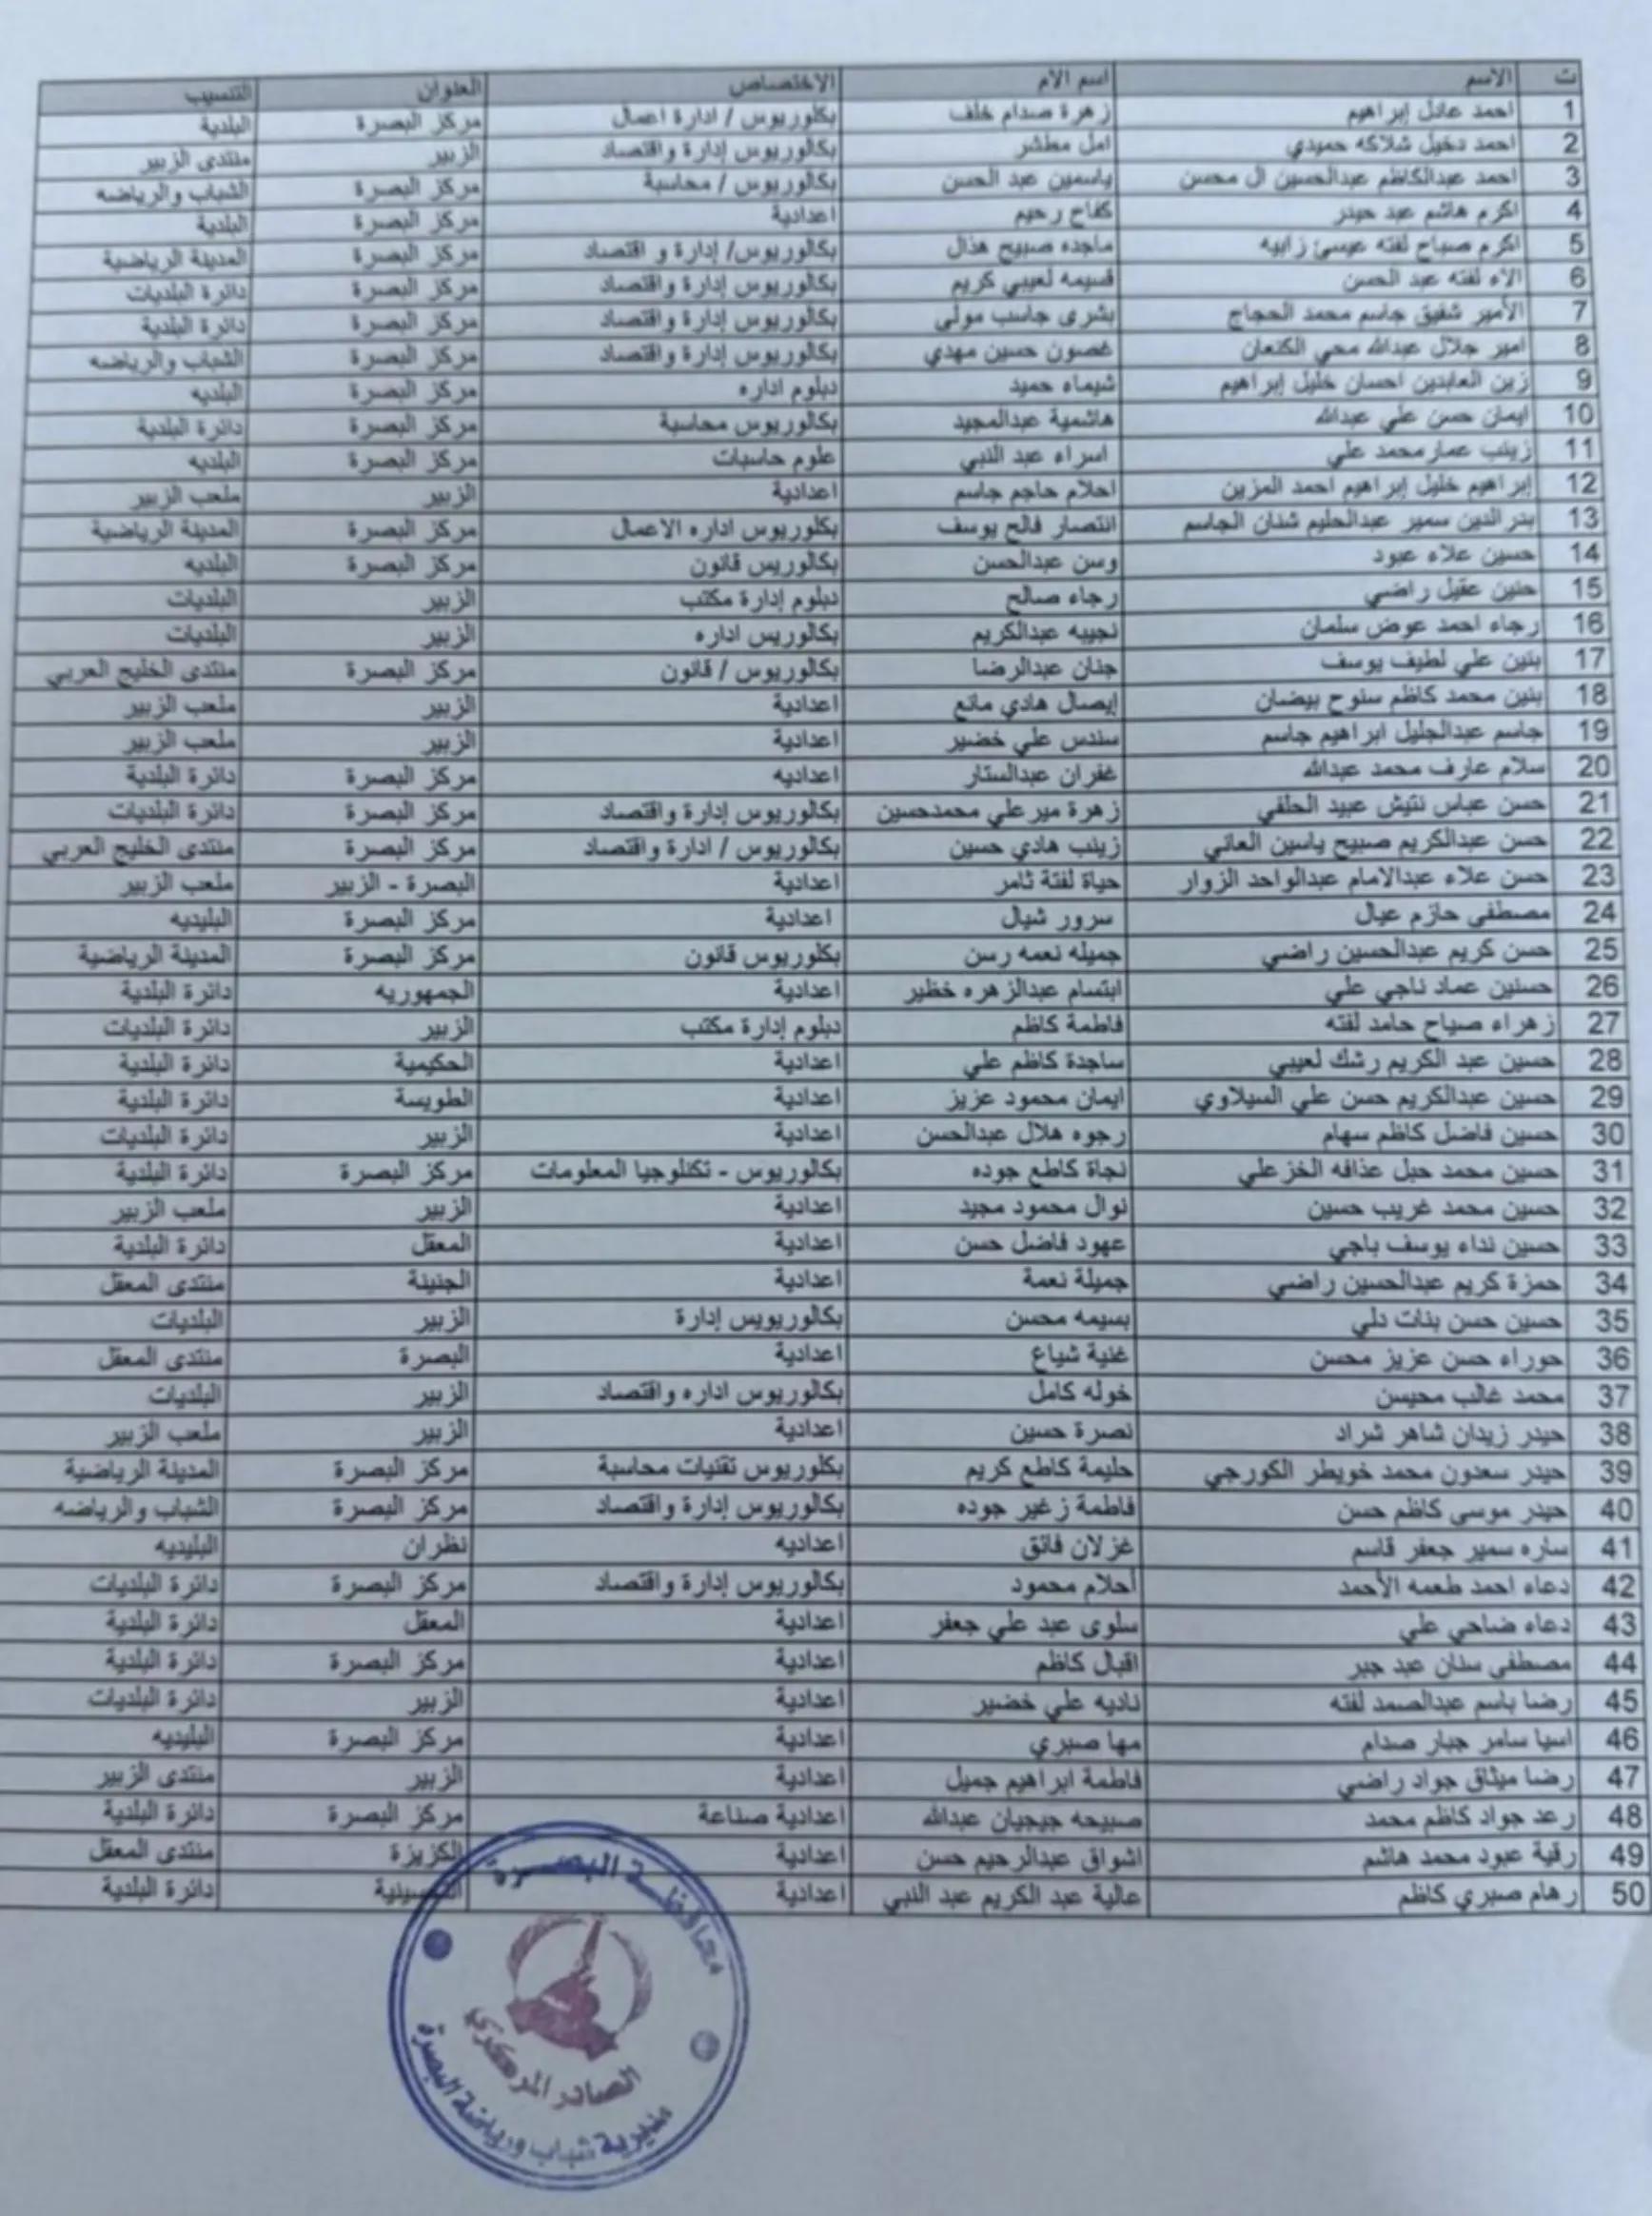 ت الاسم اسم الام الاختصاص العنوان التنسيب
1 احمد عادل إبراهيم زهرة صدام خلف بكلوريوس / ادارة اعمال مركز البصرة البلدية
2 احمد دخيل شلاكه حميدي امل مطشر بكالوريوس إدارة واقتصاد الزبير منتدى الزبير
3 احمد عبدالكاظم عبدالحسين ال محسن ياسمين عبد الحسن بكالوريوس / محاسبة مركز البصرة الشباب والرياضه
4 اكرم هاشم عبد حيدر كفاح رحيم اعدادية مركز البصرة البلدية
5 اكرم صباح لفته عيسئ زابيه ماجده صبيح هذال بكالوريوس/ إدارة و اقتصاد مركز البصرة المدينة الرياضية
6 الاء لفته عبد الحسن قسيمه لعيبي كريم بكالوريوس إدارة واقتصاد مركز البصرة دائرة البلديات
7 الأمير شفيق جاسم محمد الحجاج بشرى جاسب مولى بكالوريوس إدارة واقتصاد مركز البصرة دائرة البلدية
8 امير جلال عبدالله محي الكنعان غصون حسين مهدي بكالوريوس إدارة واقتصاد مركز البصرة الشباب والرياضه
9 زين العابدين احسان خليل إبراهيم شيماء حميد دبلوم اداره مركز البصرة البلديه
10 ايمان حسن علي عبدالله هاشمية عبدالمجيد بكالوريوس محاسبة مركز البصرة دائرة البلدية
11 زينب عمار محمد علي اسراء عبد النبي علوم حاسبات مركز البصرة البلديه
12 إبراهيم خليل إبراهيم احمد المزين احلام حاجم جاسم اعدادية الزبير ملعب الزبير
13 بدر الدين سمير عبدالحليم شنان الجاسم انتصار فالح يوسف بكلوريوس اداره الاعمال مركز البصرة المدينة الرياضية
14 حسين علاء عبود وسن عبدالحسن بكالوريس قانون مركز البصرة البلديه
15 حنين عقيل راضي رجاء صالح دبلوم إدارة مكتب الزبير البلديات
16 رجاء احمد عوض سلمان نجيبه عبدالكريم بكالوريس اداره الزبير البلديات
17 بنين علي لطيف يوسف جنان عبدالرضا بكالوريوس / قانون مركز البصرة منتدى الخليج العربي
18 بنين محمد كاظم سنوح بيضان إيصال هادي مانع اعدادية الزبير ملعب الزبير
19 جاسم عبدالجليل ابراهيم جاسم سندس علي خضير اعدادية الزبير ملعب الزبير
20 سلام عارف محمد عبدالله غفران عبدالستار اعداديه مركز البصرة دائرة البلدية
21 حسن عباس نتيش عبيد الحلفي زهرة مير علي محمدحسين بكالوريوس إدارة واقتصاد مركز البصرة دائرة البلديات
22 حسن عبدالكريم صبيح ياسين العاني زينب هادي حسين بكالوريوس / ادارة واقتصاد مركز البصرة منتدى الخليج العربي
23 حسن علاء عبدالامام عبدالواحد الزوار حياة لفتة ثامر اعدادية البصرة - الزبير ملعب الزبير
24 مصطفى حازم عيال سرور شيال اعدادية مركز البصرة البليديه
25 حسن كريم عبدالحسين راضي جميله نعمه رسن بكلوريوس قانون مركز البصرة المدينة الرياضية
26 حسنين عماد ناجي علي ابتسام عبدالزهره خظير اعدادية الجمهوريه دائرة البلدية
27 زهراء صباح حامد لفته فاطمة كاظم دبلوم إدارة مكتب الزبير دائرة البلديات
28 حسين عبد الكريم رشك لعيبي ساجدة كاظم علي اعدادية الحكيمية دائرة البلدية
29 حسين عبدالكريم حسن علي السيلاوي ايمان محمود عزيز اعدادية الطويسة دائرة البلدية
30 حسين فاضل كاظم سهام رجوه هلال عبدالحسن اعدادية الزبير دائرة البلديات
31 حسين محمد حبل عذافه الخزعلي نجاة كاطع جوده بكالوريوس - تكنلوجيا المعلومات مركز البصرة دائرة البلدية
32 حسين محمد غريب حسين نوال محمود مجيد اعدادية الزبير ملعب الزبير
33 حسين نداء يوسف باجي عهود فاضل حسن اعدادية المعقل دائرة البلدية
34 حمزة كريم عبدالحسين راضي جميلة نعمة اعدادية الجنينة منتدى المعقل
35 حسين حسن بنات دلي بسيمه محسن بكالوريويس إدارة الزبير البلديات
36 حوراء حسن عزيز محسن غنية شياع اعدادية البصرة منتدى المعقل
37 محمد غالب محيسن خوله كامل بكالوريوس اداره واقتصاد الزبير البلديات
38 حيدر زيدان شاهر شراد نصرة حسين اعدادية الزبير ملعب الزبير
39 حيدر سعدون محمد خويطر الكورجي حليمة كاطع كريم بكلوريوس تقنيات محاسبة مركز البصرة المدينة الرياضية
40 حيدر موسى كاظم حسن فاطمة زغير جوده بكالوريوس إدارة واقتصاد مركز البصرة الشباب والرياضه
41 ساره سمير جعفر قاسم غزلان فائق اعداديه نظران البليديه
42 دعاء احمد طعمه الأحمد أحلام محمود بكالوريوس إدارة واقتصاد مركز البصرة دائرة البلديات
43 دعاء ضاحي علي سلوى عبد علي جعفر اعدادية المعقل دائرة البلدية
44 مصطفى سنان عبد جبر اقبال كاظم اعدادية مركز البصرة دائرة البلدية
45 رضا باسم عبدالصمد لفته ناديه علي خضير اعدادية الزبير دائرة البلديات
46 اسيا سامر جبار صدام مها صبري اعدادية مركز البصرة البليديه
47 رضا ميثاق جواد راضي فاطمة ابراهيم جميل اعدادية الزبير منتدى الزبير
48 رعد جواد كاظم محمد صبيحه جيجيان عبدالله اعدادية صناعة مركز البصرة دائرة البلدية
49 رقية عبود محمد هاشم اشواق عبدالرحيم حسن اعدادية الكزيزة منتدى المعقل
50 رهام صبري كاظم عالية عبد الكريم عبد النبي اعدادية دائرة البلدية
محافظة البصرة
الصادر المركزي
مديرية شباب ورياضة البصرة